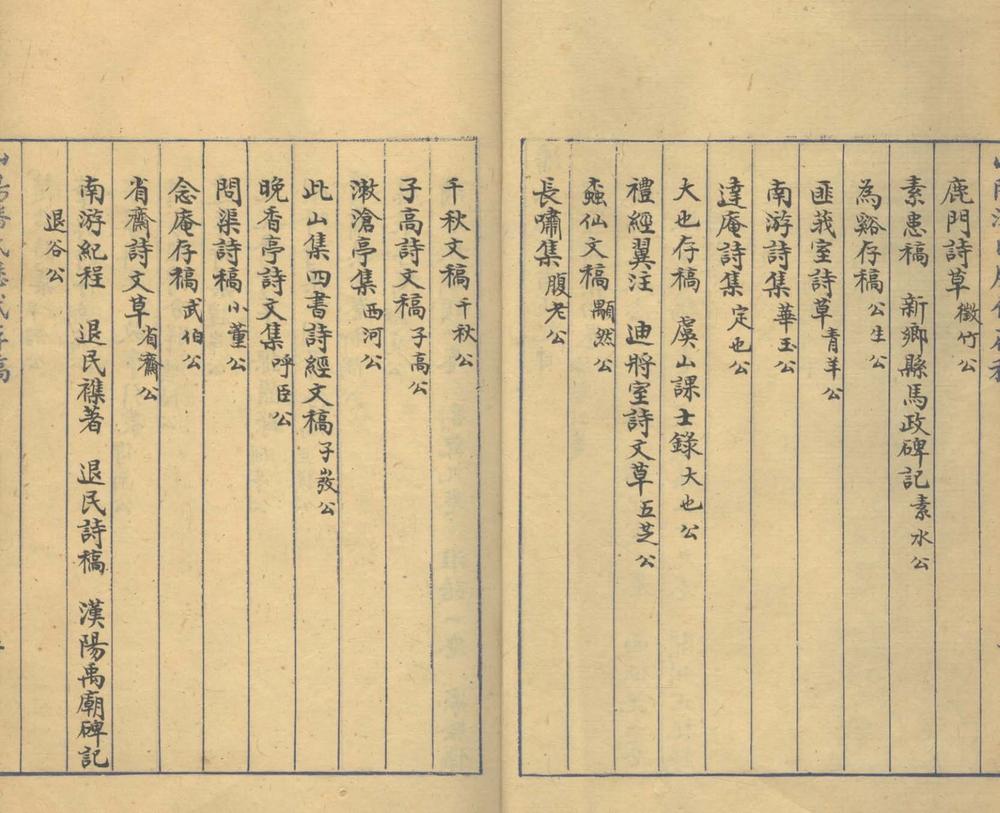 鹿門詩草 徵竹公
素患稿 新鄉縣馬政碑記 素水公
為谿存稿 公生公
匪莪室詩草 青羊公
南游詩集 華玉公
達庵詩集 定也公
大也存稿 虞山課士錄 大也公
禮經翼注 迪將室詩文草 五芝公
蝨仙文稿 顒然公
長嘯集 腹老公
千秋文稿 千秋公
子高詩文稿 子高公
漱滄亭集 西河公
此山集四書詩經文稿 子發公
晚香亭詩文集 呼臣公
問渠詩稿 小董公
念庵存稿 武伯公
省齋詩文草 省齋公
南游紀程 退民襍著 退民詩稿 漢陽禹廟碑記
退谷公